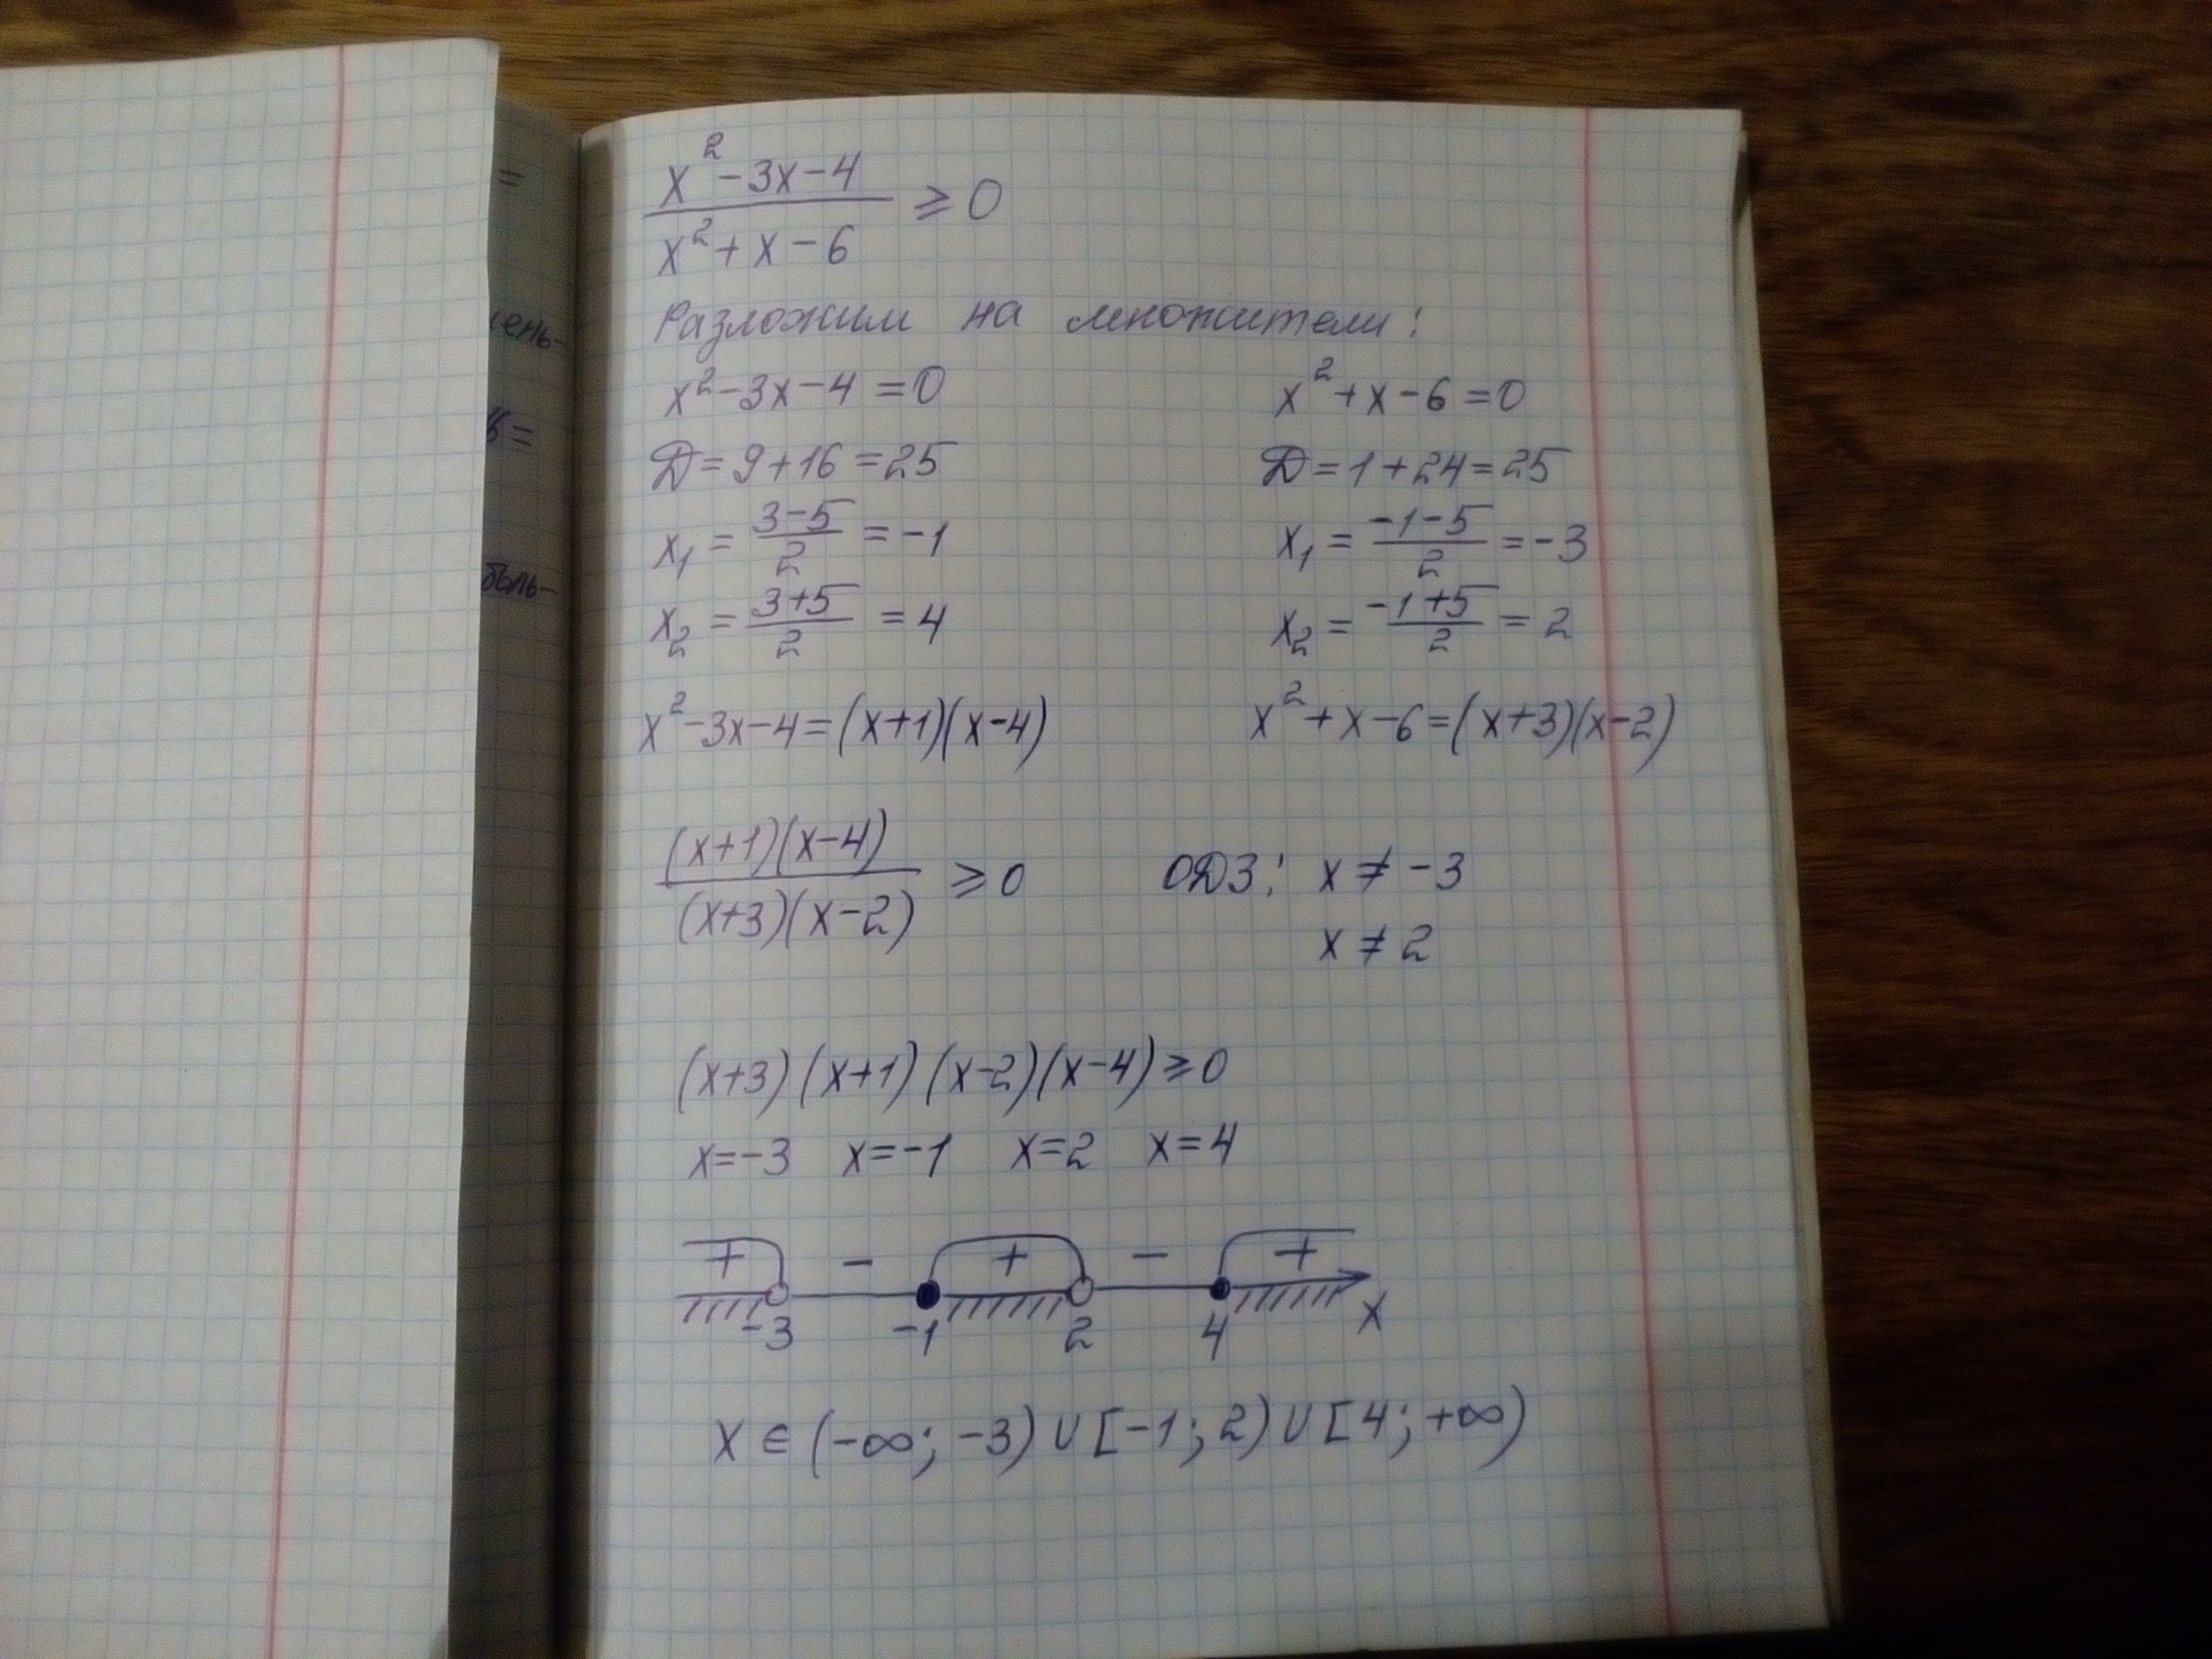 =
лень-
в=
боль-
x² - 3x - 4
x² + x - 6
≥ 0
Разложим на множители:
x² - 3x - 4 = 0
x² + x - 6 = 0
D = 9 + 16 = 25
D = 1 + 24 = 25
x₁ = (3-5)/2 = -1
x₁ = (-1-5)/2 = -3
x₂ = (3+5)/2 = 4
x₂ = (-1+5)/2 = 2
x² - 3x - 4 = (x+1)(x-4)
x² + x - 6 = (x+3)(x-2)
(x+1)(x-4)
(x+3)(x-2)
≥ 0
ОДЗ: x ≠ -3
x ≠ 2
(x+3)(x+1)(x-2)(x-4) ≥ 0
x=-3 x=-1 x=2 x=4
+ - + - +
-3 -1 2 4 x
x ∈ (-∞; -3) ∪ [-1; 2) ∪ [4; +∞)